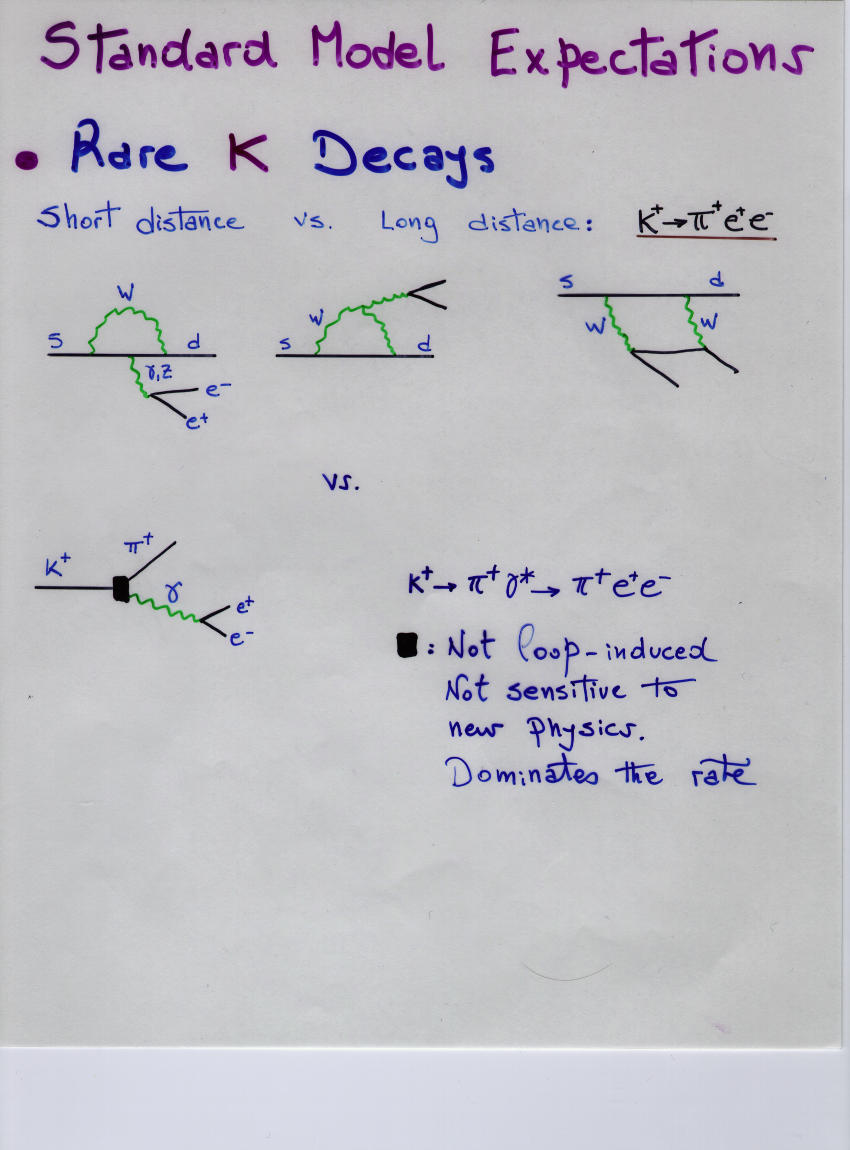 Standard Model Expectations
• Rare K Decays
Short distance vs. Long distance: K⁺→π⁺e⁺e⁻
W
S d
γ,Z
e⁻
e⁺
W
s d
s d
W W
vs.
K⁺ π⁺
γ e⁺
e⁻
K⁺→ π⁺γ*→ π⁺e⁺e⁻
■: Not loop-induced
Not sensitive to
new physics.
Dominates the rate